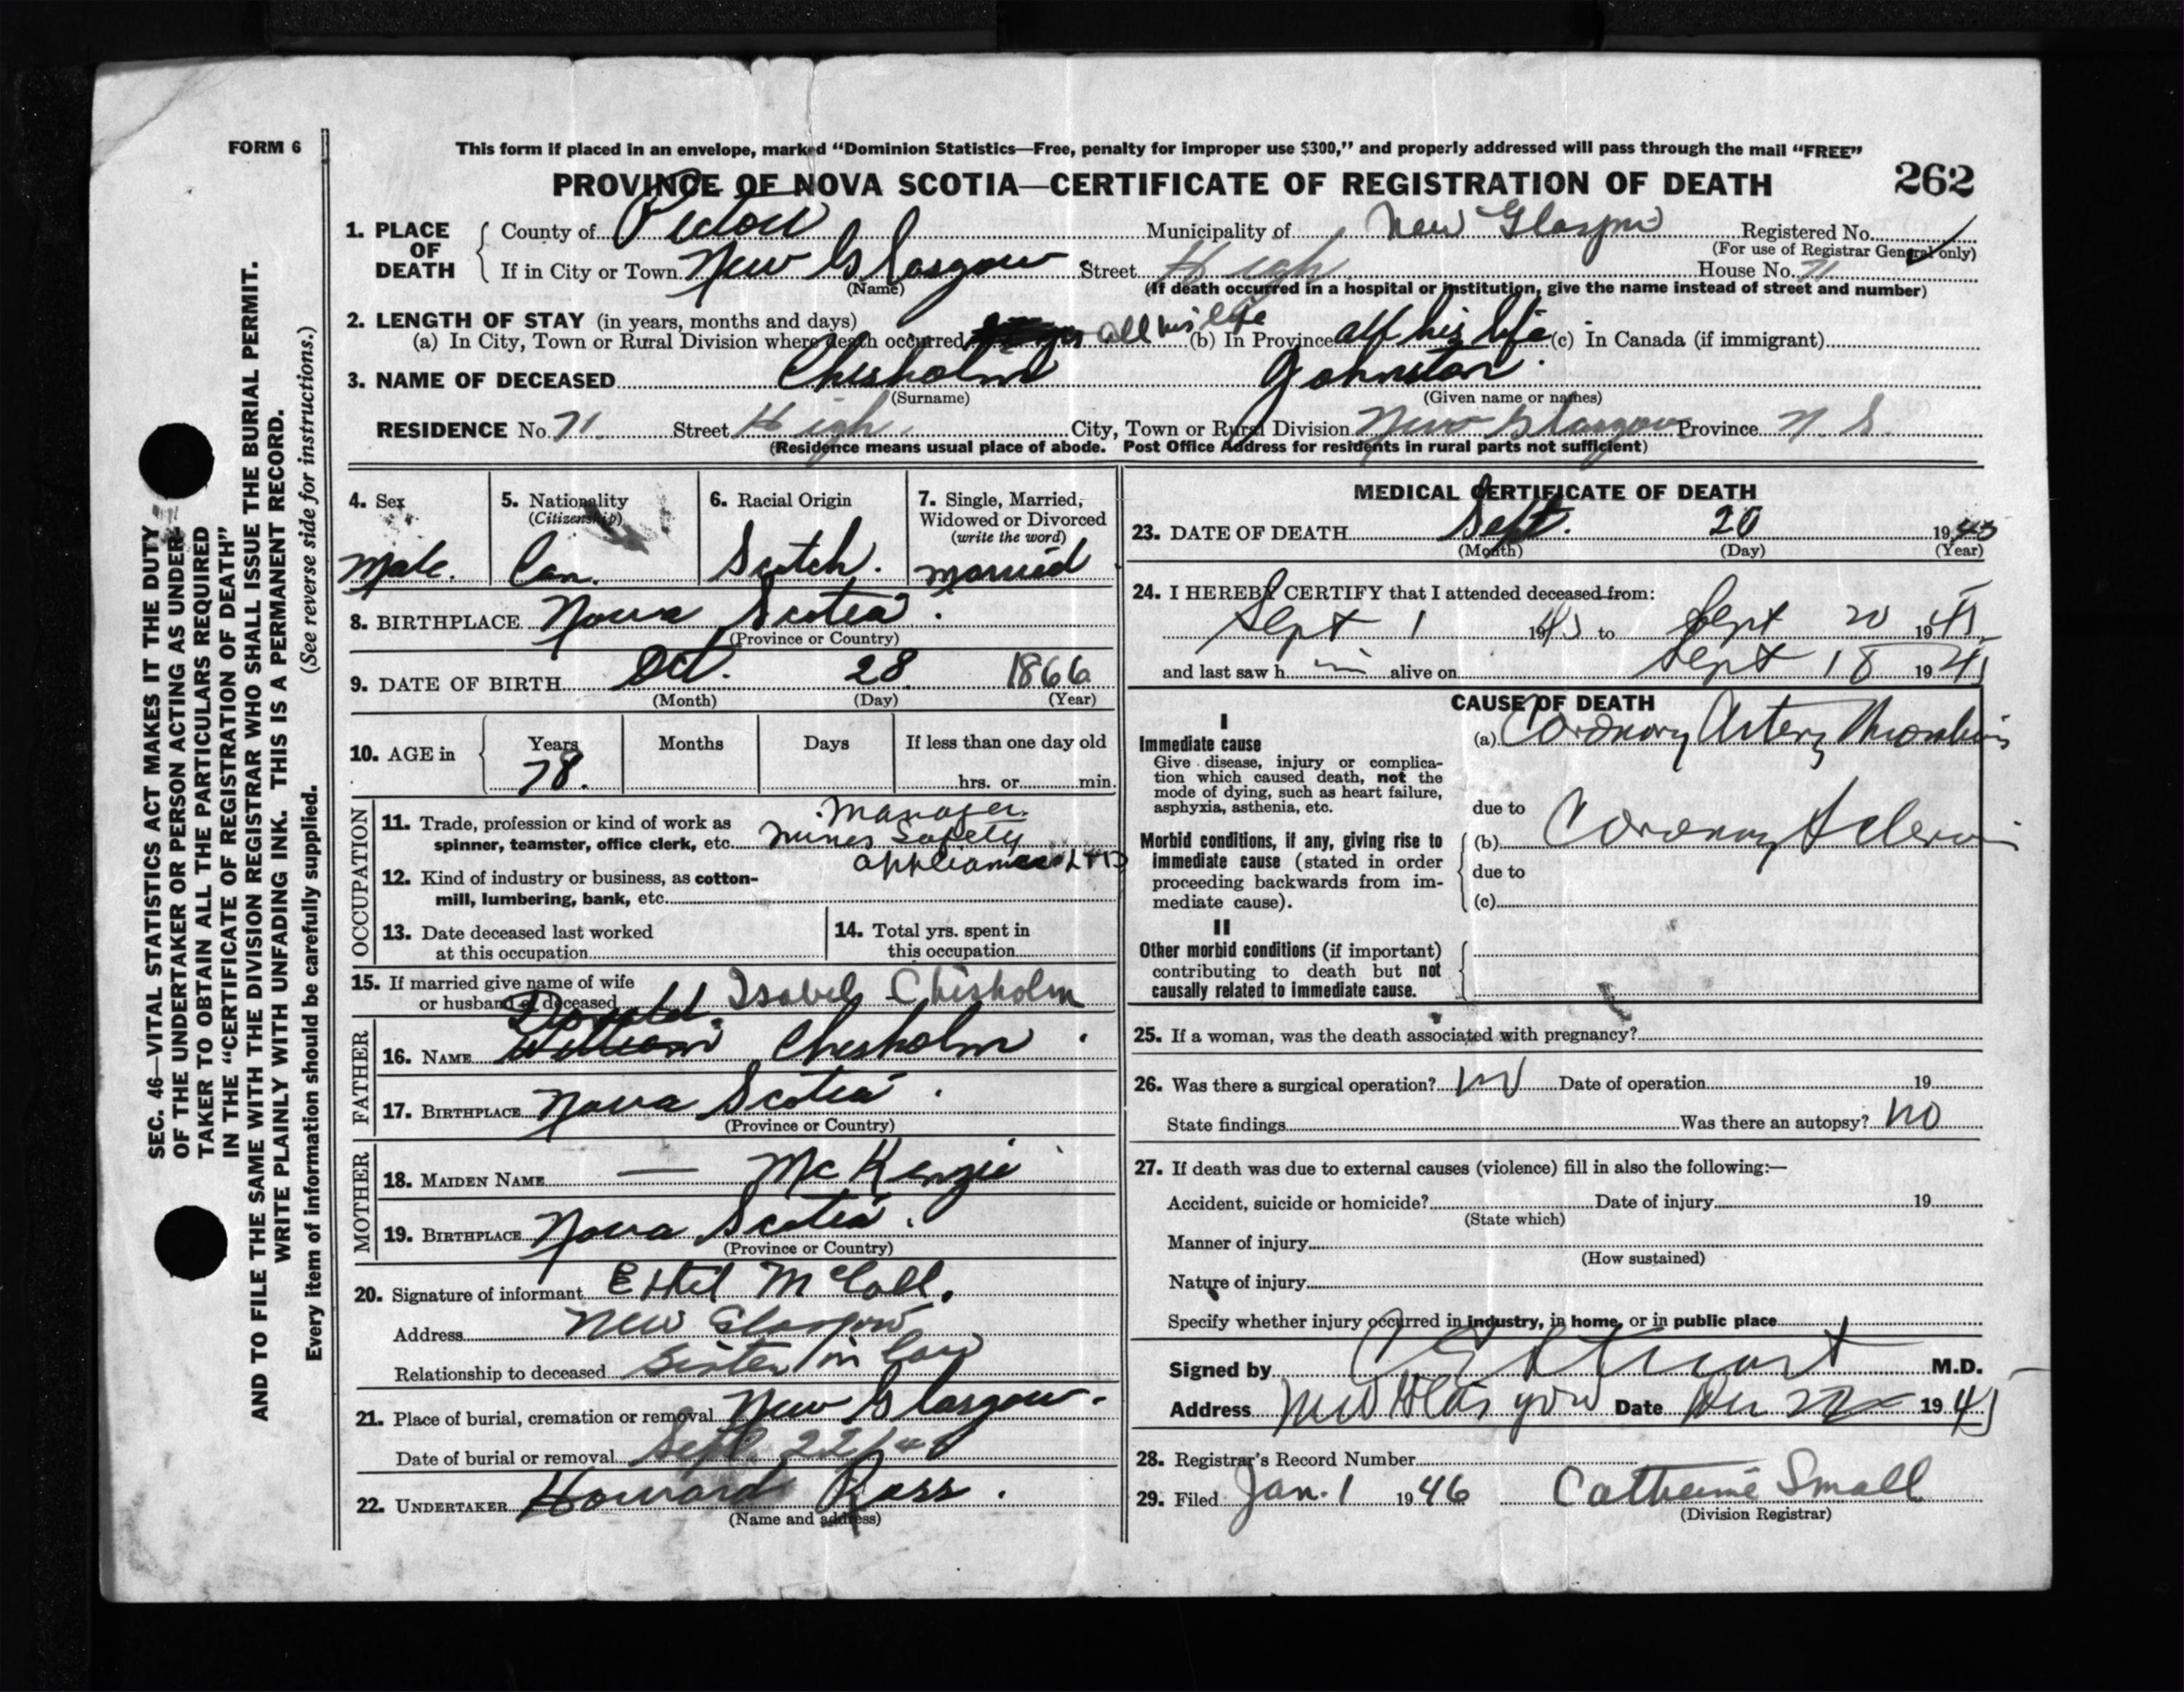 FORM 6
This form if placed in an envelope, marked “Dominion Statistics—Free, penalty for improper use $300,” and properly addressed will pass through the mail “FREE”
PROVINCE OF NOVA SCOTIA—CERTIFICATE OF REGISTRATION OF DEATH
262
1. PLACE OF DEATH
County of Pictou Municipality of New Glasgow Registered No.
(For use of Registrar General only)
If in City or Town New Glasgow Street High House No. 71
(Name) (If death occurred in a hospital or institution, give the name instead of street and number)
2. LENGTH OF STAY (in years, months and days)
(a) In City, Town or Rural Division where death occurred all his life (b) In Province all his life (c) In Canada (if immigrant)
3. NAME OF DECEASED Chisholm Johnston
(Surname) (Given name or names)
RESIDENCE No. 71 Street High City, Town or Rural Division New Glasgow Province N. S.
(Residence means usual place of abode. Post Office Address for residents in rural parts not sufficient)
4. Sex
Male.
5. Nationality
(Citizenship)
Can.
6. Racial Origin
Scotch.
7. Single, Married,
Widowed or Divorced
(write the word)
married
8. BIRTHPLACE Nova Scotia.
(Province or Country)
9. DATE OF BIRTH Oct. 28 1866
(Month) (Day) (Year)
10. AGE in
Years Months Days If less than one day old
78. hrs. or min.
OCCUPATION
11. Trade, profession or kind of work as
spinner, teamster, office clerk, etc.
Manager
Mines Safety
appliances LTD
12. Kind of industry or business, as cotton-
mill, lumbering, bank, etc.
13. Date deceased last worked
at this occupation
14. Total yrs. spent in
this occupation
15. If married give name of wife
or husband of deceased Isabel Chisholm
FATHER
Donald
16. NAME William Chisholm.
17. BIRTHPLACE Nova Scotia.
(Province or Country)
MOTHER
18. MAIDEN NAME — McKenzie
19. BIRTHPLACE Nova Scotia.
(Province or Country)
20. Signature of informant Ethel McColl.
Address New Glasgow
Relationship to deceased Sister in law
21. Place of burial, cremation or removal New Glasgow.
Date of burial or removal Sept 22/45
22. UNDERTAKER Howard Ross.
(Name and address)
MEDICAL CERTIFICATE OF DEATH
23. DATE OF DEATH Sept. 20 1945
(Month) (Day) (Year)
24. I HEREBY CERTIFY that I attended deceased from:
Sept 1 1945 to Sept 20 1945
and last saw h im alive on Sept 18 1945
CAUSE OF DEATH
I
Immediate cause
Give disease, injury or complica-
tion which caused death, not the
mode of dying, such as heart failure,
asphyxia, asthenia, etc.
(a) Coronary Artery Thrombosis
due to
Morbid conditions, if any, giving rise to
immediate cause (stated in order
proceeding backwards from im-
mediate cause).
(b) Coronary Sclerosis
due to
(c)
II
Other morbid conditions (if important)
contributing to death but not
causally related to immediate cause.
25. If a woman, was the death associated with pregnancy?
26. Was there a surgical operation? no Date of operation 19
State findings Was there an autopsy? no
27. If death was due to external causes (violence) fill in also the following:—
Accident, suicide or homicide? Date of injury 19
(State which)
Manner of injury
(How sustained)
Nature of injury
Specify whether injury occurred in industry, in home, or in public place
Signed by M.D.
Address New Glasgow Date 1945
28. Registrar's Record Number
29. Filed Jan. 1 1946 Catherine Small
(Division Registrar)
SEC. 46—VITAL STATISTICS ACT MAKES IT THE DUTY
OF THE UNDERTAKER OR PERSON ACTING AS UNDER-
TAKER TO OBTAIN ALL THE PARTICULARS REQUIRED
IN THE “CERTIFICATE OF REGISTRATION OF DEATH”
AND TO FILE THE SAME WITH THE DIVISION REGISTRAR WHO SHALL ISSUE THE BURIAL PERMIT.
WRITE PLAINLY WITH UNFADING INK. THIS IS A PERMANENT RECORD.
Every item of information should be carefully supplied. (See reverse side for instructions.)